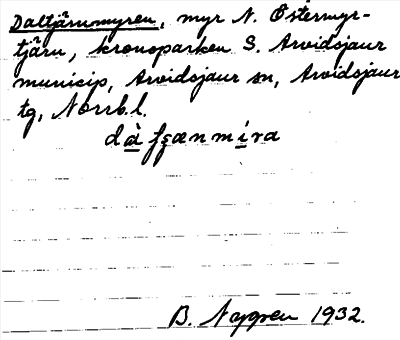 Daltjärnmyren, myr N. Östermyr-
tjärn, kronoparken S. Arvidsjaur
municip, Arvidsjaur sn, Arvidsjaur
tg, Norrb. l.
B. Nygren 1932.